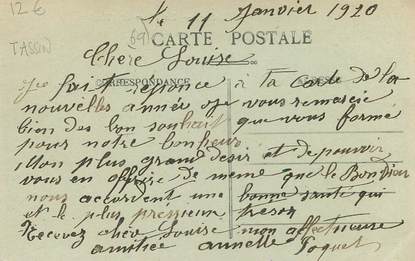 12€
TASSIN
69
le 11 Janvier 1920
CARTE POSTALE
Chère Louise
CORRESPONDANCE
Je fait réponce à ta carte de la
nouvelles année et je vous remercie
bien des bon souhait que vous formé
pour notre bonheur
Mon plus grand desir et de pouvoir
vous en offrire de meme que le Bon Dieu
nous accordent une bonne santé qui
et le plus pressieux tresor
Recevez chère Louise mon affectueuse
amitiée annelle Poquet